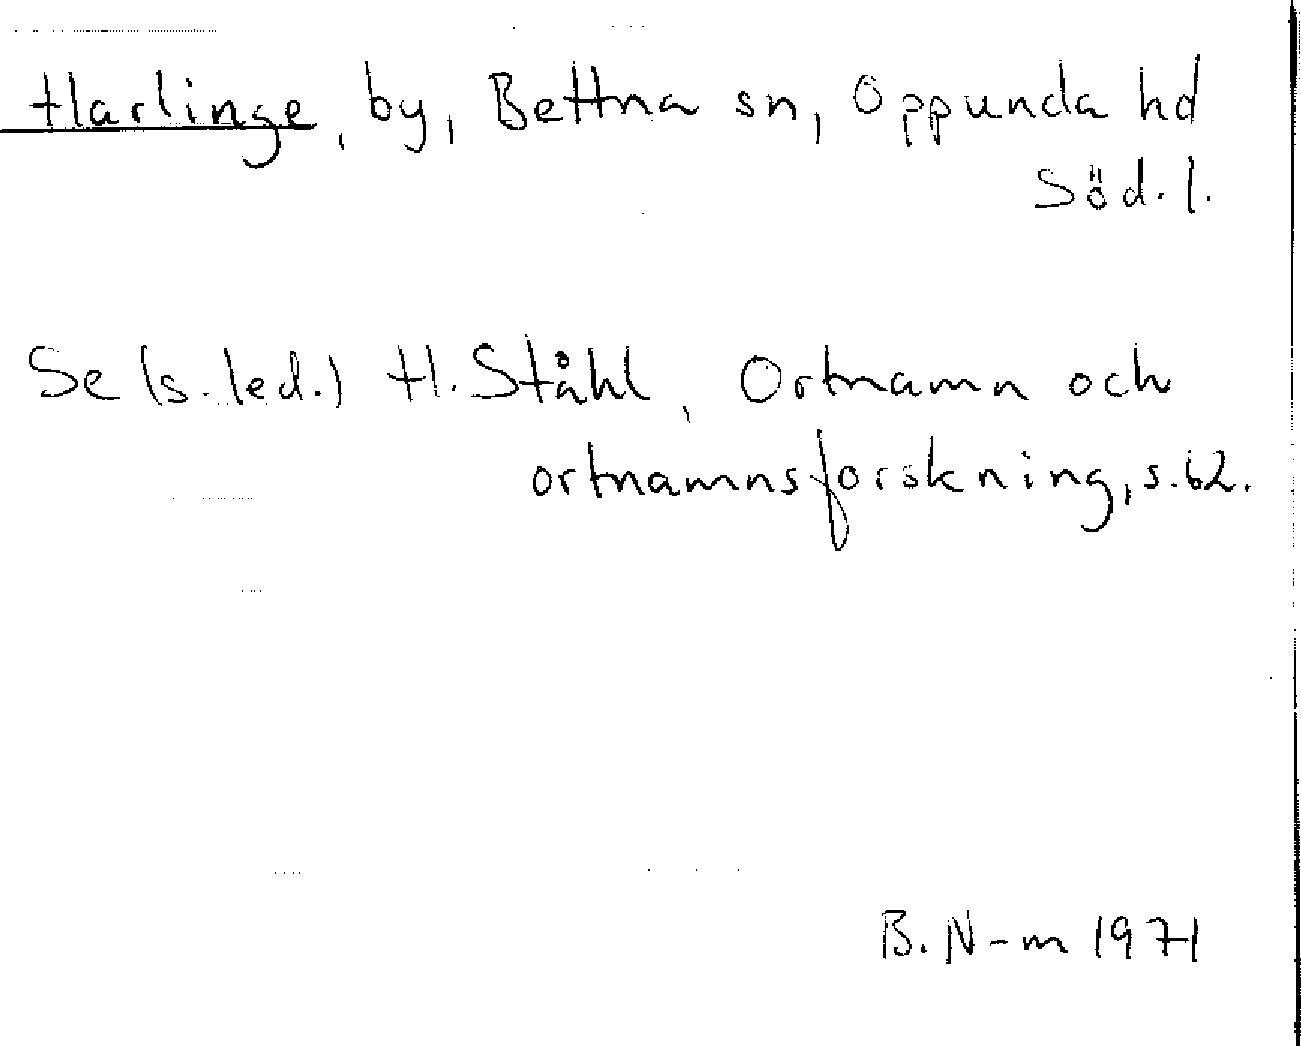 Harlinge, by, Bettna sn, Oppunda hd
Söd.l.
Se (s.led.) H. Ståhl, Ortnamn och
ortnamnsforskning, s.62.
B. N-m 1971